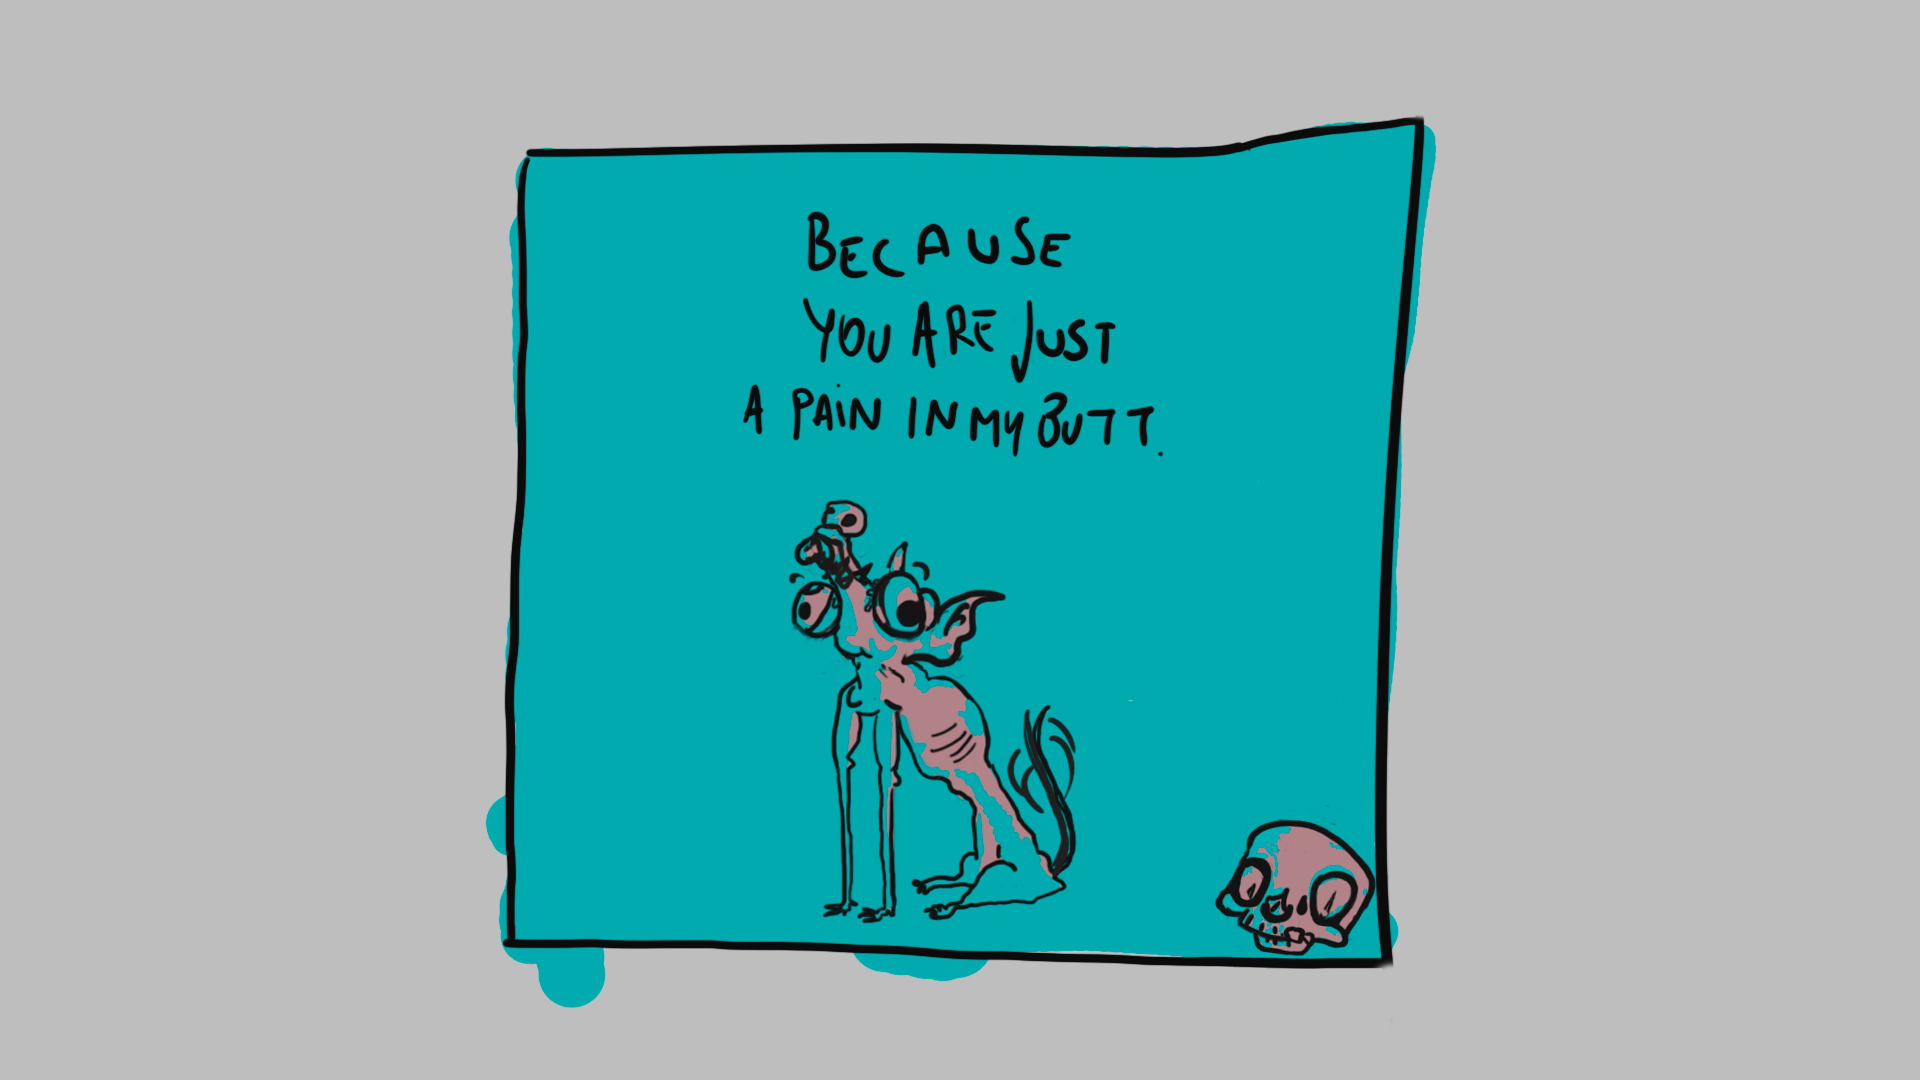 BECAUSE
YOU ARE JUST
A PAiN IN MY BUTT.